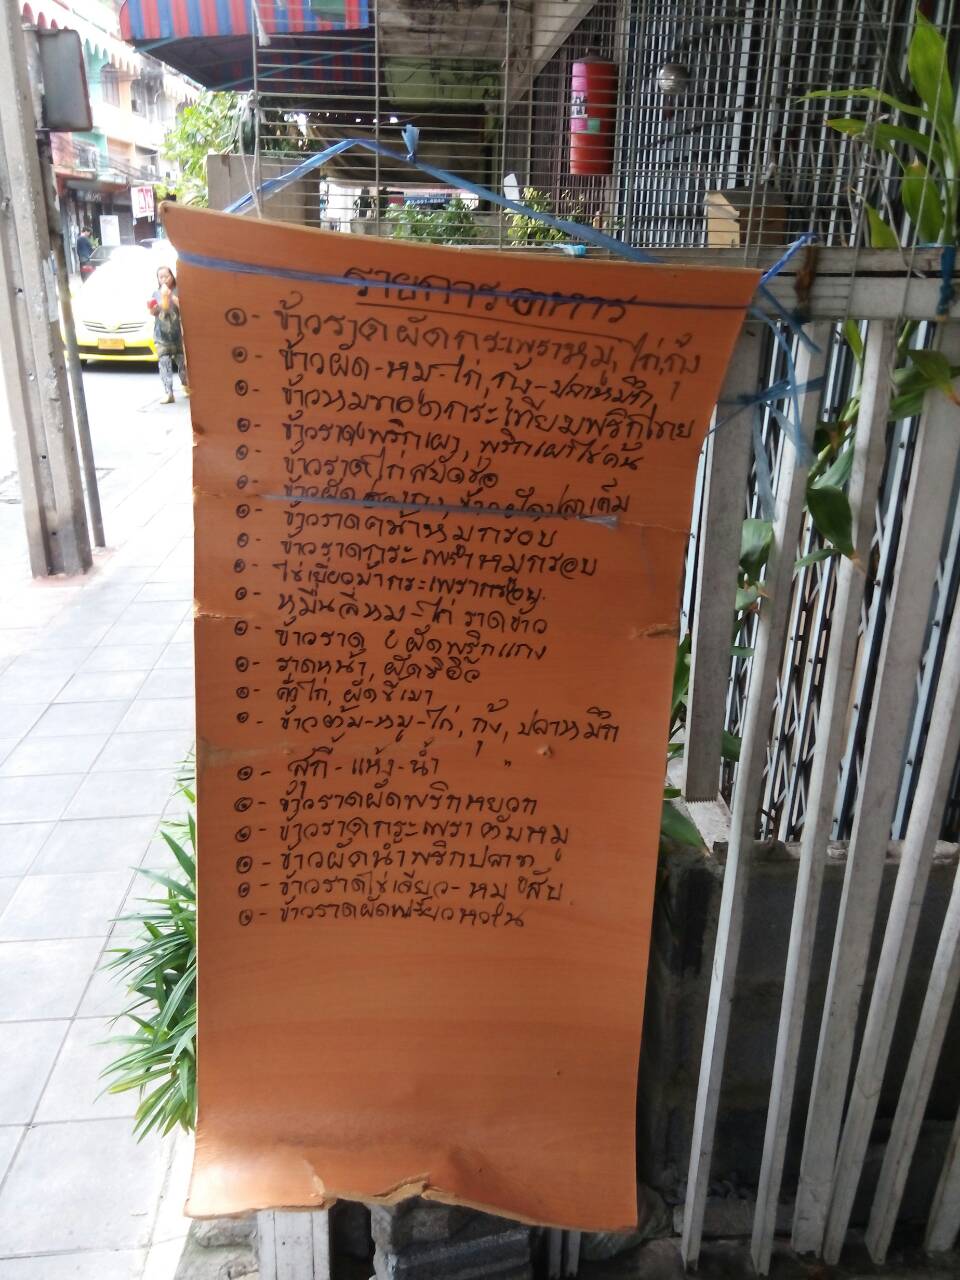 รายการอาหาร
๑- ข้าวราดผัดกระเพราหมู, ไก่, กุ้ง
๑- ข้าวผัด-หมู-ไก่, กุ้ง-ปลาหมึก
๑- ข้าวหมูทอดกระเทียมพริกไทย
๑- ข้าวราดพริกเผา, พริกเผาไข่คั่น
๑- ข้าวราดไก่สับัดช่อ
๑- ข้าวผัด ข้าวผัดปลาเค็ม
๑- ข้าวราดคน้าหมูกรอบ
๑- ข้าวราดกระเพราหมูกรอบ
๑- ไข่เยี่ยวม้ากระเพรากรอบ
๑- หมื่นลี่หมู-ไก่ ราดข้าว
๑- ข้าวราด ผัดพริกแกง
๑- ราดหน้า, ผัดซีอิ้ว
๑- คั่วไก่, ผัดขี้เมา
๑- ข้าวต้ม-หมู-ไก่, กุ้ง, ปลาหมึก
๑- สุกี้-แห้ง-น้ำ "
๑- ข้าวราดผัดพริกหยวก
๑- ข้าวราดกระเพราตับหมู
๑- ข้าวผัดน้ำพริกปลาทู
๑- ข้าวราดไข่เจียว-หมูสับ
๑- ข้าวราดผัดเปรี้ยวหวาน